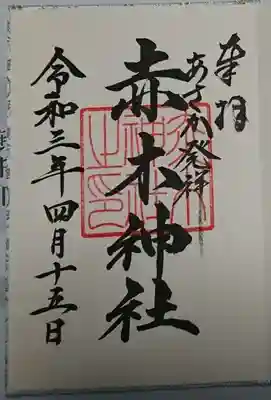 奉拝
あさか発祥
赤木神社
令和三年四月十五日